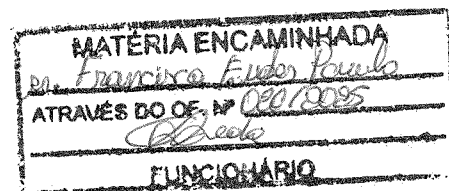 MATÉRIA ENCAMINHADA
Francisco Eudes
ATRAVÉS DO OF. Nº 090/2025
FUNCIONÁRIO